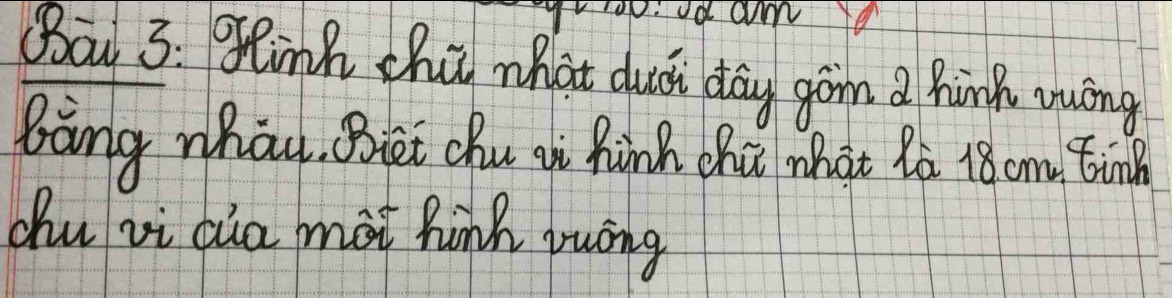 Bài 3: Hình chữ nhật dưới đây gồm 2 hình vuông
bằng nhau. Biết chu vi hình chữ nhật là 18 cm. Tính
chu vi của mỗi hình vuông